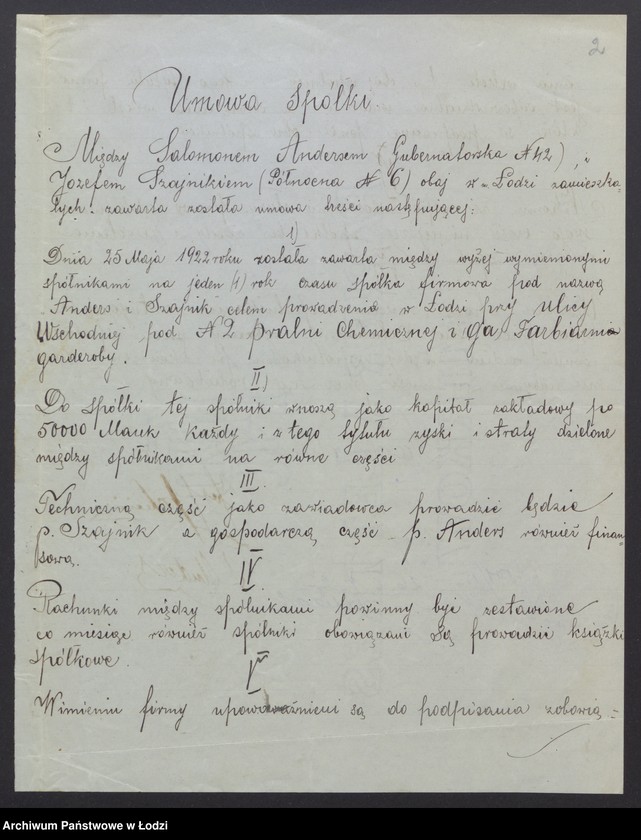 2
Umowa Spółki
Między Salomonem Andersem (Gubernatorska N 42), "
Józefem Szajnikiem (Północna N 6) obaj w Łodzi zamieszka-
łych: zawarta została umowa treści następującej:
1)
Dnia 25 Maja 1922 roku została zawarta między wyżej wymienionymi
spólnikami na jeden (1) rok czasu spółka firmowa pod nazwą
Anders i Szajnik celem prowadzenia w Łodzi przy ulicy
Wschodniej pod N 2 pralni Chemicznej i Farbiarnia
garderoby.
II)
Do spółki tej spólniki wnoszą jako kapitał zakładowy po
50000 Mauk każdy i z tego tytułu zyski i straty dzielone
między spólnikami na równe części
III.
Techniczną część jako zawiadowca prowadzić będzie
p. Szajnik a gospodarczą część p. Anders również finan-
sową.
IV
Rachunki między spólnikami powinny być zestawione
co miesiąc również spólniki obowiązani są prowadzić książki
spółkowe.
V
Wimieniu firmy upoważnieni są do podpisania zobowią-
Archiwum Państwowe w Łodzi